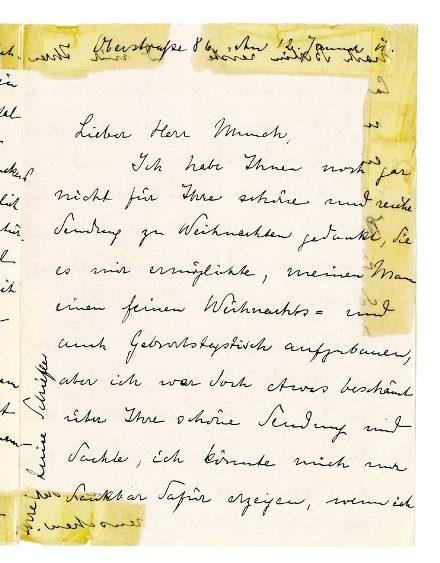 Oberstraße 86, den 12. Januar
Lieber Herr Munch,
Ich habe Ihnen noch gar
nicht für Ihre schöne und reiche
Sendung zu Weihnachten gedankt, die
es mir ermöglichte, meinem Mann
einen feinen Weihnachts= und
auch Geburtstagstisch aufzubauen,
aber ich war doch etwas beschämt
über Ihre schöne Sendung und
dachte, ich könnte mich nur
dankbar dafür erzeigen, wenn ich
Ihre Luise Schiefler